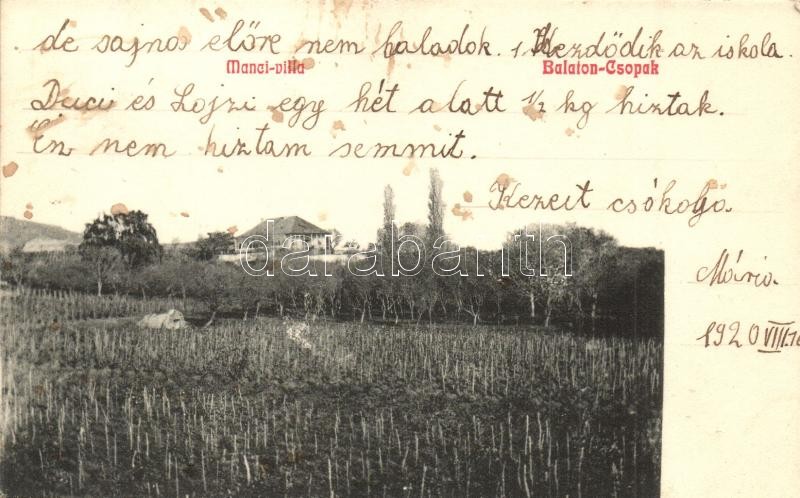 de sajnos előre nem haladok. Kezdődik az iskola.
Manci-villa
Balaton-Csopak
Duci és Lojzi egy hét alatt 1/2 kg hiztak.
Én nem hiztam semmit.
Kezeit csókolja.
Mária.
1920 VIII.
darabanth